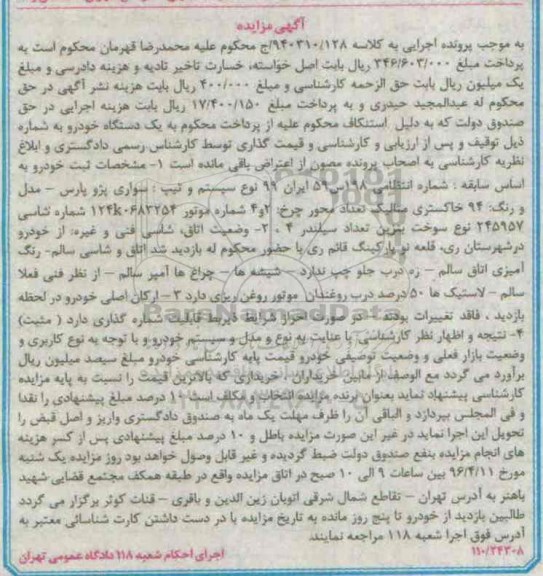 آگهی مزایده
به موجب پرونده اجرایی به کلاسه ۹۴۰۳۱۰/۱۲۸/ج محکوم علیه محمدرضا قهرمان محکوم است به
پرداخت مبلغ ۳۴۶/۶۰۳/۰۰۰ ریال بابت اصل خواسته، خسارت تاخیر تادیه و هزینه دادرسی و مبلغ
یک میلیون ریال بابت حق الزحمه کارشناسی و مبلغ ۴۰۰/۰۰۰ ریال بابت هزینه نشر آگهی در حق
محکوم له عبدالمجید حیدری و به پرداخت مبلغ ۱۷/۴۰۰/۱۵۰ ریال بابت هزینه اجرایی در حق
صندوق دولت که به دلیل استنکاف محکوم علیه از پرداخت محکوم به یک دستگاه خودرو به شماره
ذیل توقیف و پس از ارزیابی و کارشناسی و قیمت گذاری توسط کارشناس رسمی دادگستری و ابلاغ
نظریه کارشناسی به اصحاب پرونده مصون از اعتراض باقی مانده است ۱- مشخصات ثبت خودرو به
اساس سابقه : شماره انتظامی ۱۹۸س۵۹ ایران ۹۹ نوع سیستم و تیپ : سواری پژو پارس – مدل
و رنگ: ۹۴ خاکستری متالیک تعداد محور چرخ: ۲و۴ شماره موتور ۱۲۴k۰۶۸۳۲۵۴ شماره شاسی
۲۴۵۹۵۷ نوع سوخت بنزین تعداد سیلندر ۴ ۲۰- وضعیت اتاق، شاسی فنی و غیره: از خودرو
درشهرستان ری، قلعه نو پارکینگ قائم ری با حضور محکوم له بازدید شد اتاق و شاسی سالم- رنگ
آمیزی اتاق سالم – زه درب جلو چپ ندارد – شیشه ها – چراغ ها آمپر سالم – از نظر فنی فعلا
سالم – لاستیک ها ۵۰ درصد درب روغندان موتور روغن ریزی دارد ۳ – ارکان اصلی خودرو در لحظه
بازدید ، فاقد تغییرات بودند – در صورت احراز شرایط ذیربط قابلیت شماره گذاری دارد ( مثبت)
۴- نتیجه و اظهار نظر کارشناسی: با عنایت به نوع و مدل و سیستم خودرو و با توجه به نوع کاربری و
وضعیت بازار فعلی و وضعیت توصیفی خودرو قیمت پایه کارشناسی خودرو مبلغ سیصد میلیون ریال
برآورد می گردد مع الوصف از مابین خریداران ، خریداری که بالاترین قیمت را نسبت به پایه مزایده
کارشناسی پیشنهاد نماید بعنوان برنده مزایده انتخاب و مکلف است ۱۰ درصد مبلغ پیشنهادی را نقدا
و فی المجلس بپردازد و الباقی آن را ظرف مهلت یک ماه به صندوق دادگستری واریز و اصل قبض را
تحویل این اجرا نماید در غیر این صورت مزایده باطل و ۱۰ درصد مبلغ پیشنهادی پس از کسر هزینه
های انجام مزایده بنفع صندوق دولت ضبط گردیده و غیر قابل وصول خواهد بود روز مزایده یک شنبه
مورخ ۹۶/۴/۱۱ بین ساعات ۹ الی ۱۰ صبح در اتاق مزایده واقع در طبقه همکف مجتمع قضایی شهید
باهنر به آدرس تهران – تقاطع شمال شرقی اتوبان زین الدین و باقری – قنات کوثر برگزار می گردد
طالبین بازدید از خودرو تا پنج روز مانده به تاریخ مزایده با در دست داشتن کارت شناسائی معتبر به
آدرس فوق اجرا شعبه ۱۱۸ مراجعه نمایند
۱۱۰/۲۴۳۰۸ اجرای احکام شعبه ۱۱۸ دادگاه عمومی تهران